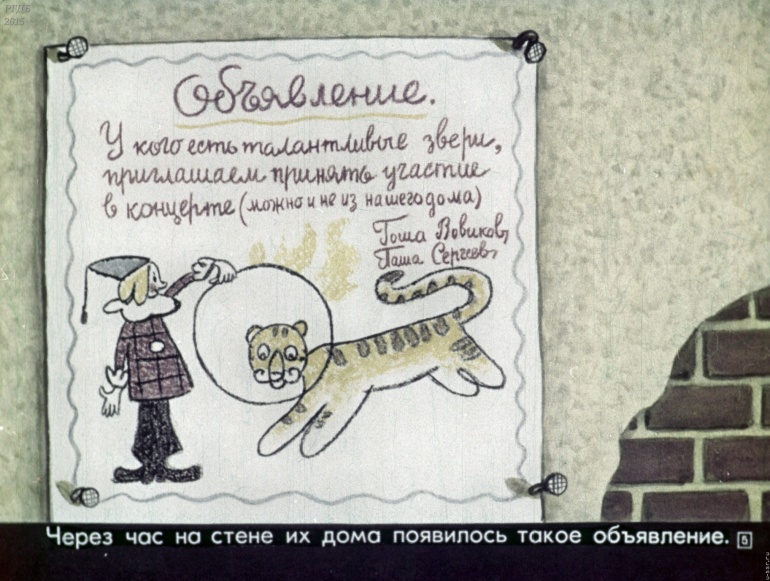 РГДБ
2015
Объявление.
У кого есть талантливые звери,
приглашаем принять участие
в концерте (можно и не из нашего дома)
Гоша Вовиков,
Паша Сергеев,
Через час на стене их дома появилось такое объявление. 5